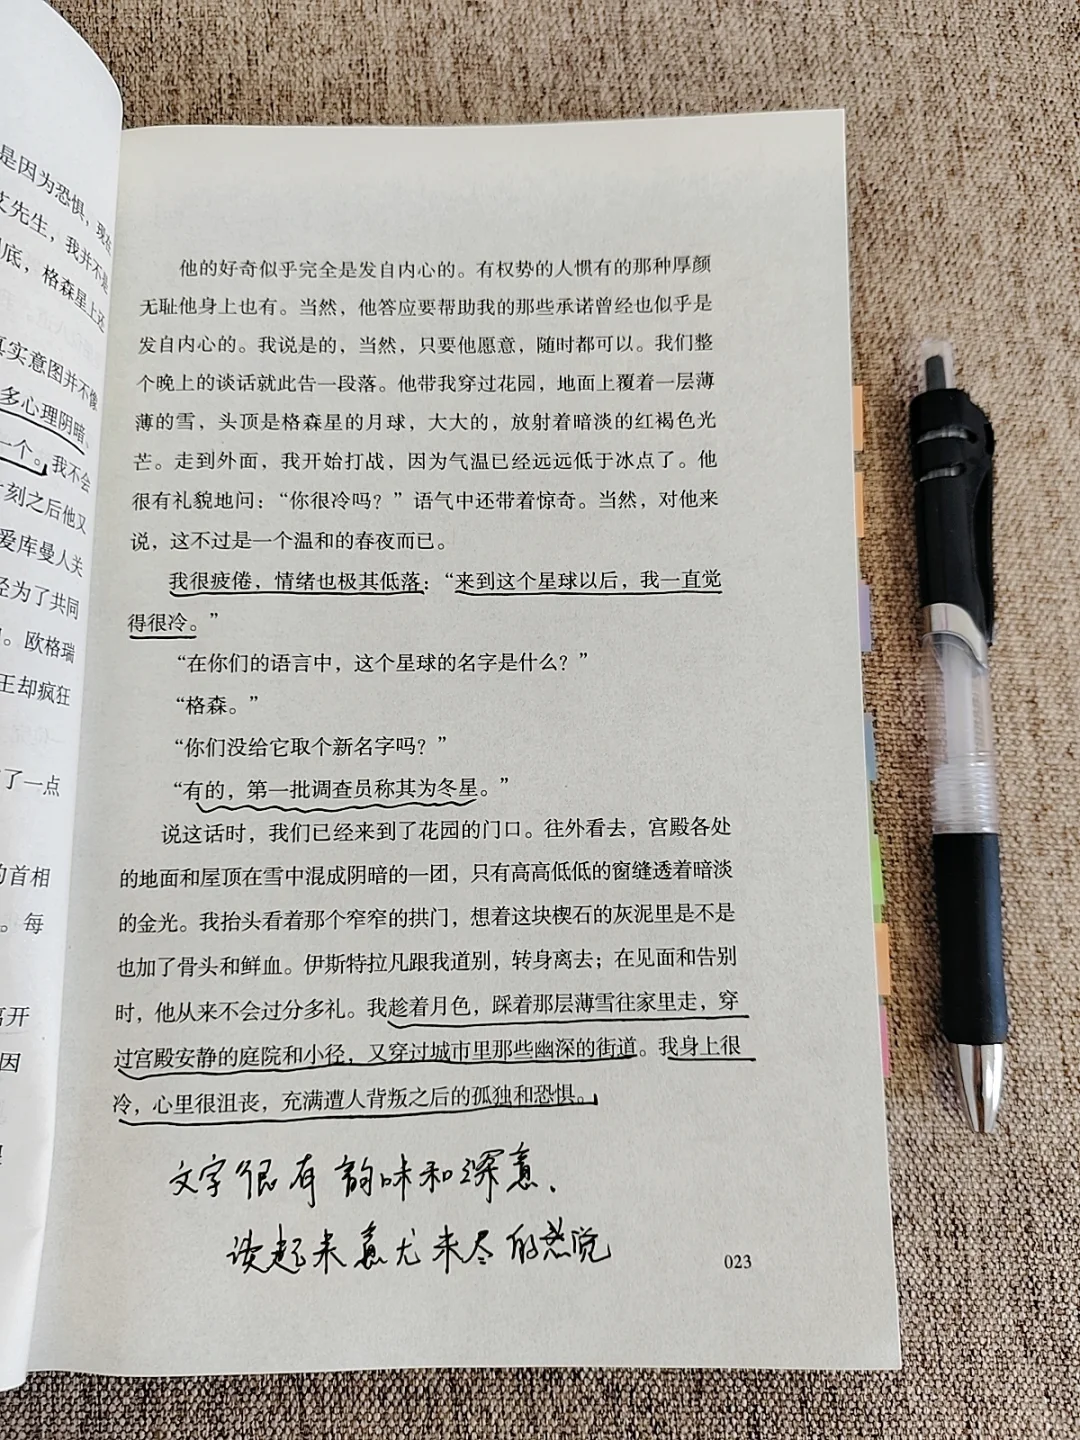 是因为恐惧，现在
艾先生，我并不是
到底，格森星上还
真实意图并不像
多心理阴暗、
一个。我不会
刻之后他又
爱库曼人关
经为了共同
。欧格瑞
王却疯狂
了一点
的首相
。每
离开
因
他的好奇似乎完全是发自内心的。有权势的人惯有的那种厚颜
无耻他身上也有。当然，他答应要帮助我的那些承诺曾经也似乎是
发自内心的。我说是的，当然，只要他愿意，随时都可以。我们整
个晚上的谈话就此告一段落。他带我穿过花园，地面上覆着一层薄
薄的雪，头顶是格森星的月球，大大的，放射着暗淡的红褐色光
芒。走到外面，我开始打战，因为气温已经远远低于冰点了。他
很有礼貌地问：“你很冷吗？”语气中还带着惊奇。当然，对他来
说，这不过是一个温和的春夜而已。
我很疲倦，情绪也极其低落：“来到这个星球以后，我一直觉
得很冷。”
“在你们的语言中，这个星球的名字是什么？”
“格森。”
“你们没给它取个新名字吗？”
“有的，第一批调查员称其为冬星。”
说这话时，我们已经来到了花园的门口。往外看去，宫殿各处
的地面和屋顶在雪中混成阴暗的一团，只有高高低低的窗缝透着暗淡
的金光。我抬头看着那个窄窄的拱门，想着这块楔石的灰泥里是不是
也加了骨头和鲜血。伊斯特拉凡跟我道别，转身离去；在见面和告别
时，他从来不会过分多礼。我趁着月色，踩着那层薄雪往家里走，穿
过宫殿安静的庭院和小径，又穿过城市里那些幽深的街道。我身上很
冷，心里很沮丧，充满遭人背叛之后的孤独和恐惧。
文字很有韵味和深意、
读起来意尤未尽的感觉
023